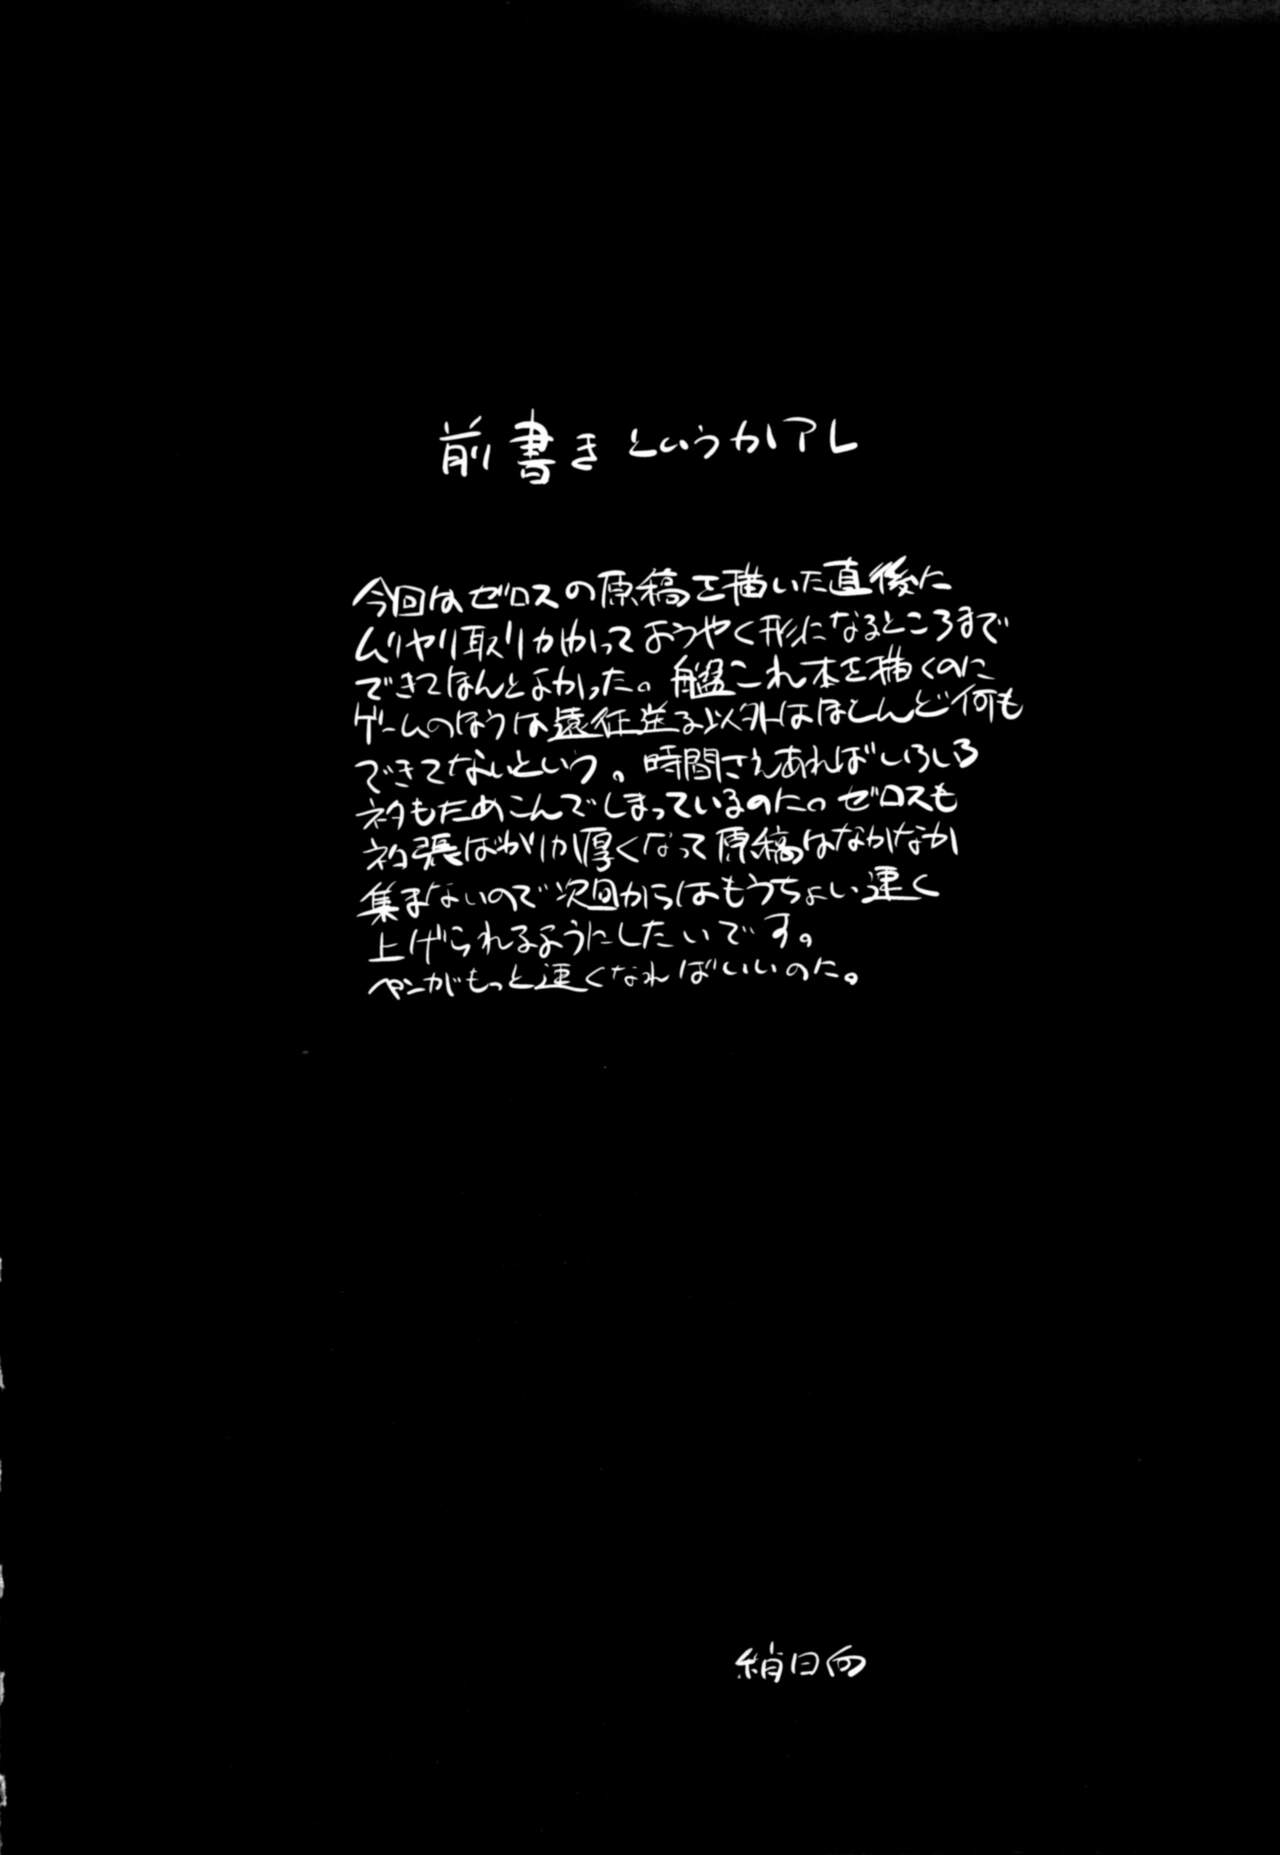 前書きというかアレ
今回はゼロスの原稿を描いた直後に
ムリヤリ取りかかってようやく形になるところまで
できてほんとよかった。艦これ本を描くのに
ゲームのほうは遠征送る以外はほとんど何も
できてないという。時間さえあればいろいろ
ネタもためこんでしまっているのに。ゼロスも
ネタ帳ばかりが厚くなって原稿はなかなか
集まないので次回からはもうちょい速く
上げられるようにしたいです。
ペンがもっと速くなればいいのに。
絹日向